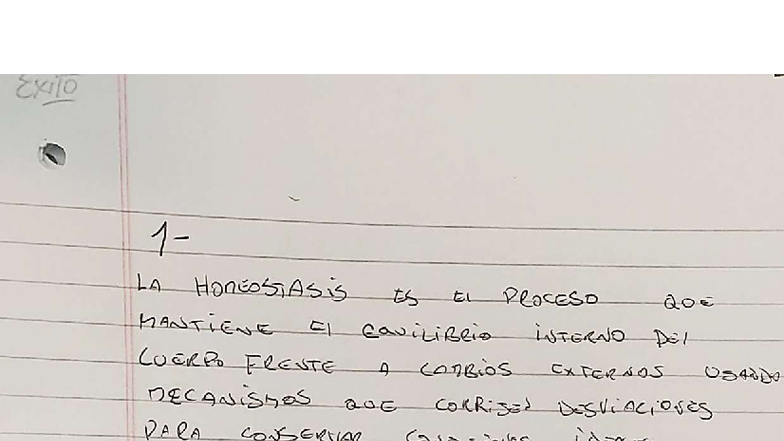 ÉXITO
1-
LA HOMEOSTASIS ES El PROCESO QUE
MANTIENE El EQUILIBRIO INTERNO DEl
CUERPO FRENTE A CAMBIOS EXTERNOS USANDO
MECANISMOS QUE CORRIGEN DESVIACIONES
PARA CONSERVAR